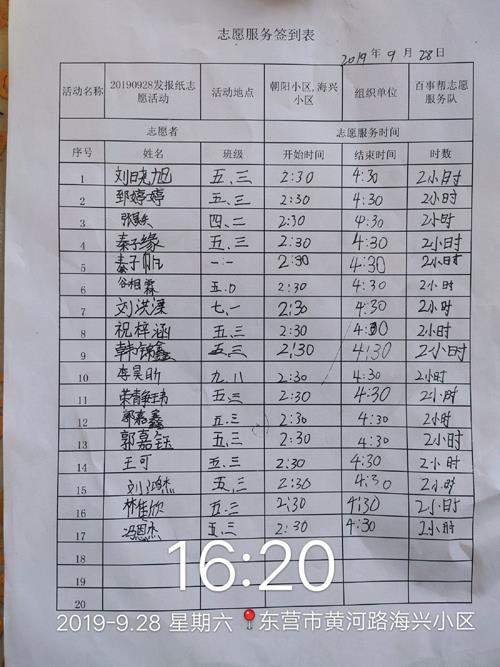 志愿服务签到表
2019 年 9 月 28 日
活动名称 20190928发报纸志愿活动 活动地点 朝阳小区,海兴小区 组织单位 百事帮志愿服务队
志愿者 志愿服务时间
序号 姓名 班级 开始时间 结束时间 时数
1 刘晓旭 五.三 2:30 4:30 2小时
2 郅婷婷 五.三 2:30 4:30 2小时
3 四.二 2:30 4:30 2小时
4 秦子缘 五.三 2:30 4:30 2小时
5 秦子帆 一.一 2:30 4:30 2小时
6 谷相霖 五.0 2:30 4:30 2小时
7 刘洪溧 七.一 2:30 4:30 2小时
8 祝梓涵 五.三 2:30 4:30 2小时
9 韩锦鑫 五.三 2:30 4:30 2小时
10 李昊昕 九.八 2:30 4:30 2小时
11 五.三 2:30 4:30 2小时
12 郭嘉鑫 五.三 2:30 4:30 2小时
13 郭嘉钰 五.三 2:30 4:30 2小时
14 王可 五.三 2:30 4:30 2小时
15 刘鸿杰 五.三 2:30 4:30 2小时
16 林佳欣 五.三 2:30 4:30 2小时
17 冯恩杰 五.三 2:30 4:30 2小时
18
19
20
16:20
2019-9.28 星期六 东营市黄河路海兴小区